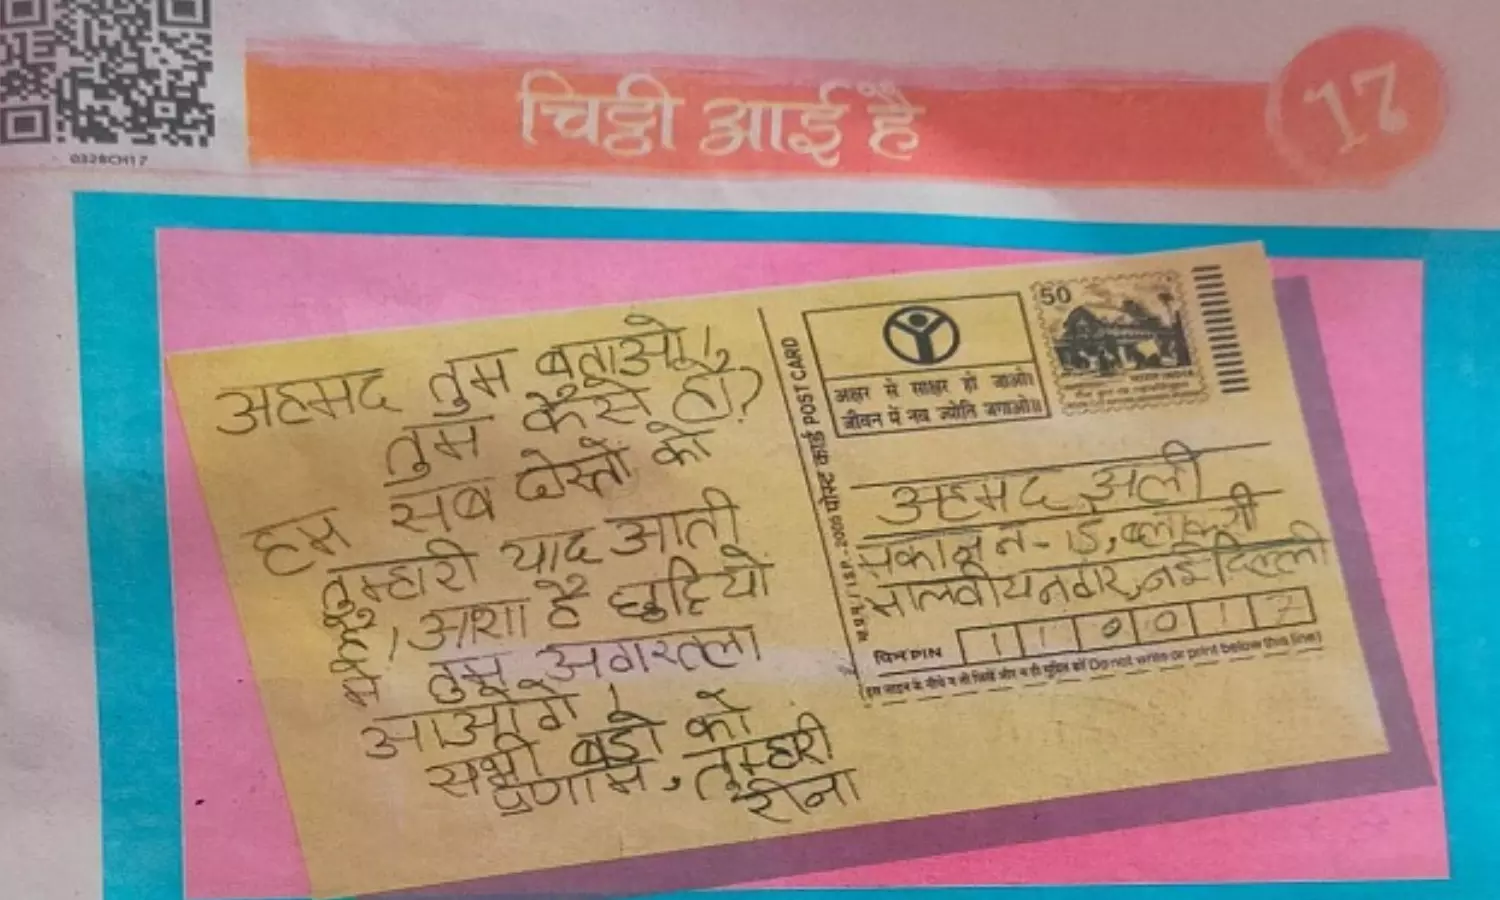 0328CH17
चिट्ठी आई है
17
अहमद तुम बताओ!,
तुम कैसे हो?
हम सब दोस्तों को
तुम्हारी याद आती
है। आशा है छुट्टियों
में तुम अगरतला
आओगे।
सभी बड़ो को
प्रणाम, तुम्हारी
रीना
पोस्ट कार्ड POST CARD
50
अक्षर से साक्षर हो जाओ।
जीवन में नव ज्योति जगाओ॥
अहमद अली
मकान न-15, ब्लाक सी
मालवीय नगर, नई दिल्ली
पिन PIN 110017
(इस लाइन के नीचे न तो लिखें और न ही मुद्रित करें Do not write or print below this line)